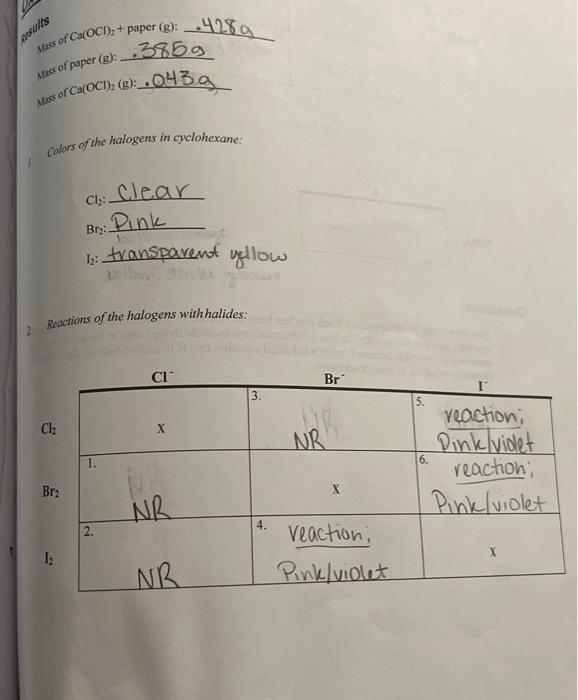 Results
Mass of Ca(OCl)₂ + paper (g): .428g
Mass of paper (g): .385g
Mass of Ca(OCl)₂ (g): .043g
1 Colors of the halogens in cyclohexane:
Cl₂: Clear
Br₂: Pink
I₂: transparent yellow
2 Reactions of the halogens with halides:
Cl⁻ Br⁻ I⁻
Cl₂ X 3. NR 5. reaction; Pink/violet
Br₂ 1. NR X 6. reaction; Pink/violet
I₂ 2. NR 4. reaction; Pink/violet X